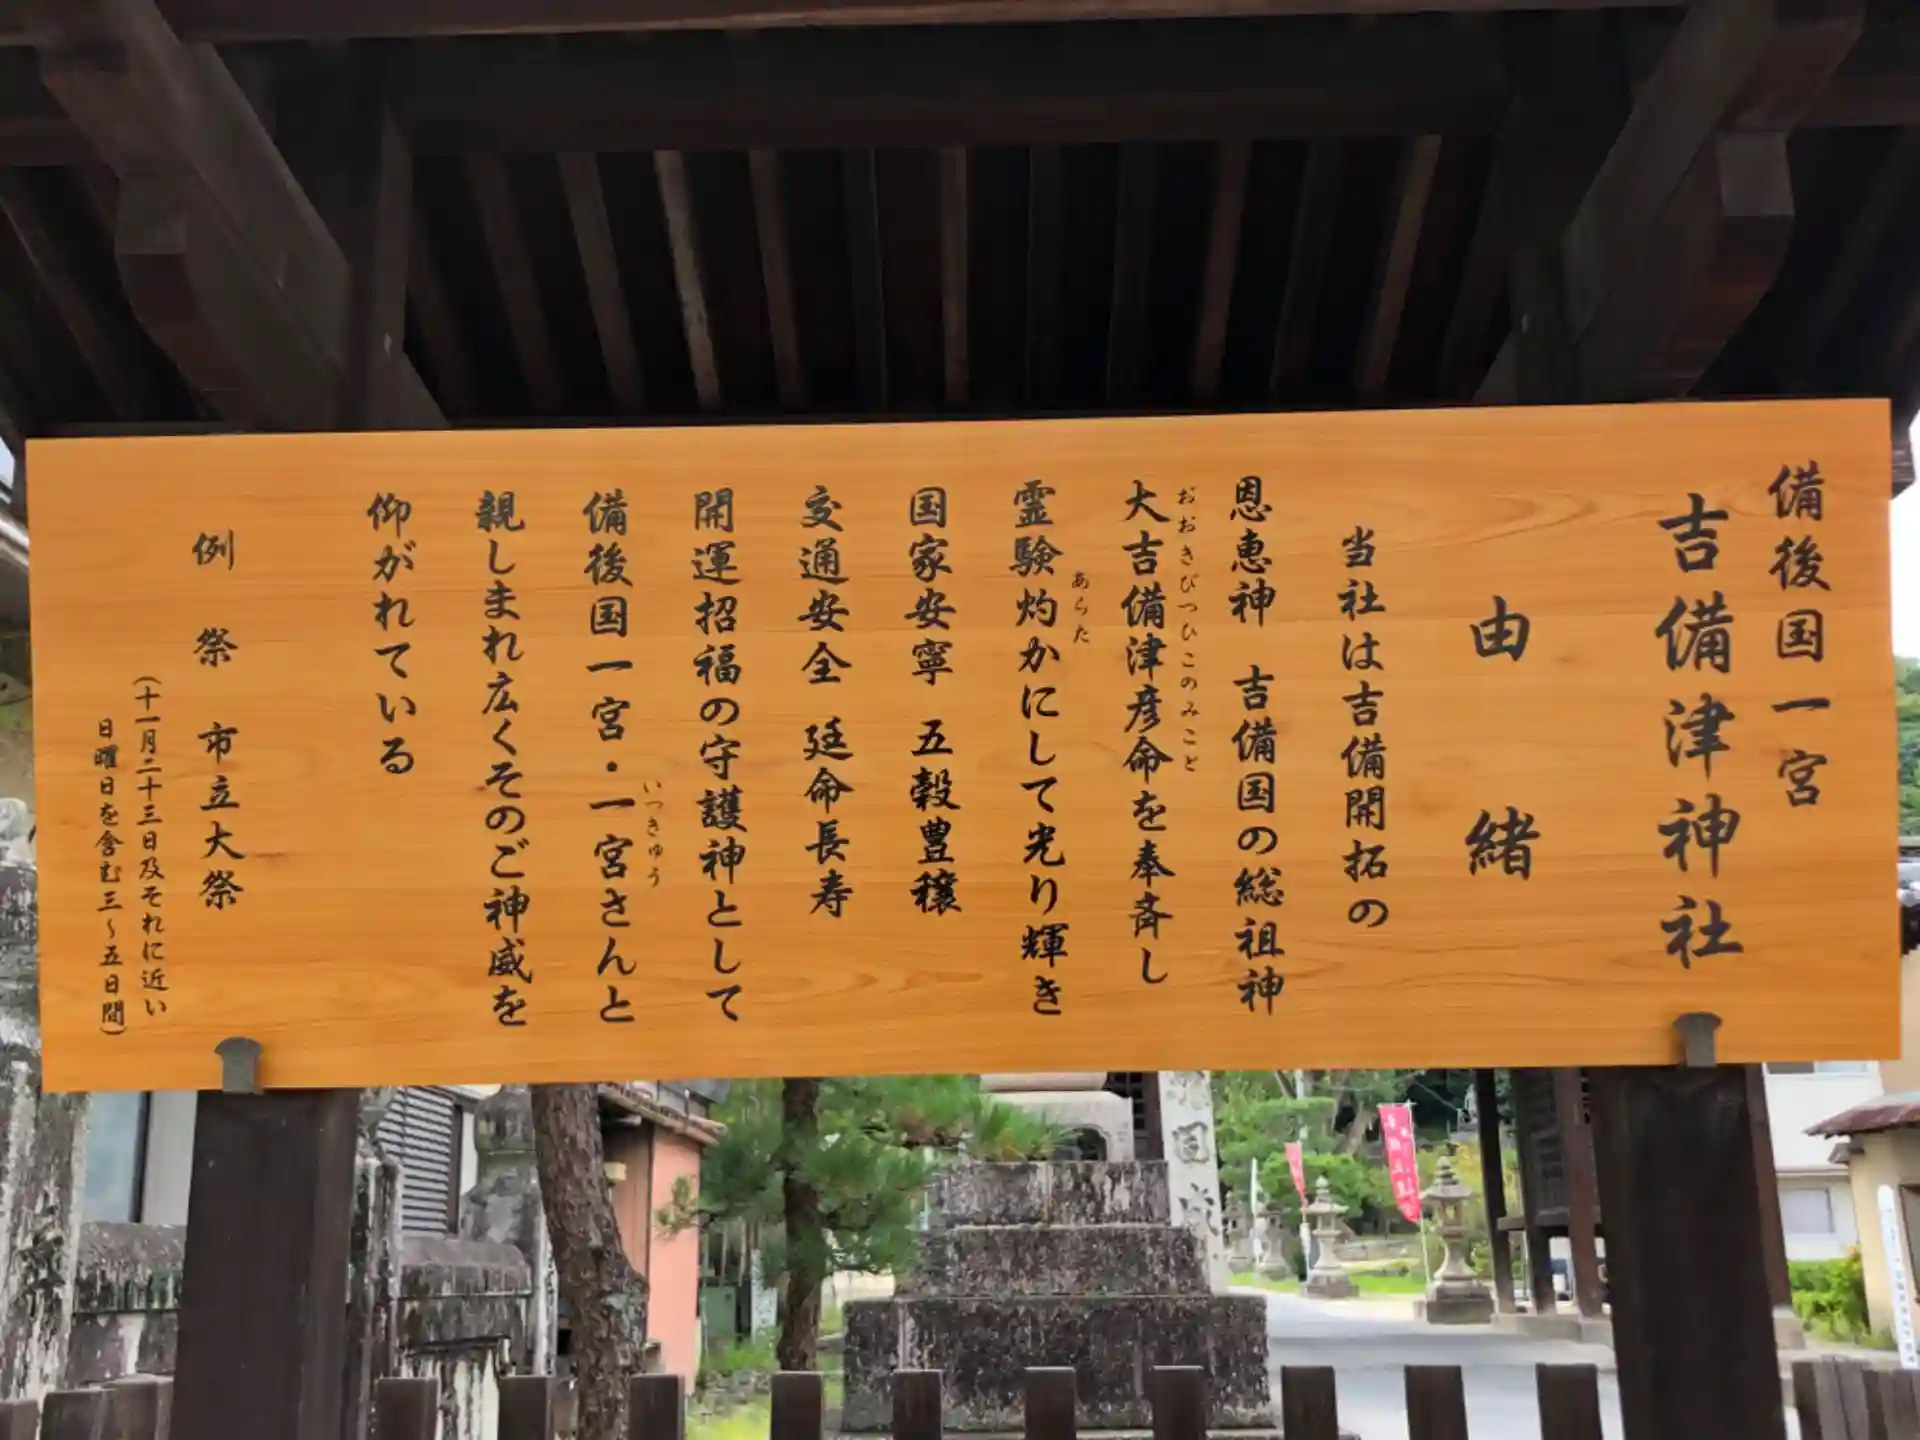 備後国一宮
吉備津神社
由緒
当社は吉備開拓の
恩恵神 吉備国の総祖神
おおきびつひこのみこと
大吉備津彦命を奉斉し
あらた
霊験灼かにして光り輝き
国家安寧 五穀豊穣
交通安全 延命長寿
開運招福の守護神として
いつきゅう
備後国一宮・一宮さんと
親しまれ広くそのご神威を
仰がれている
例祭 市立大祭
(十一月二十三日及それに近い
日曜日を含む三〜五日間)